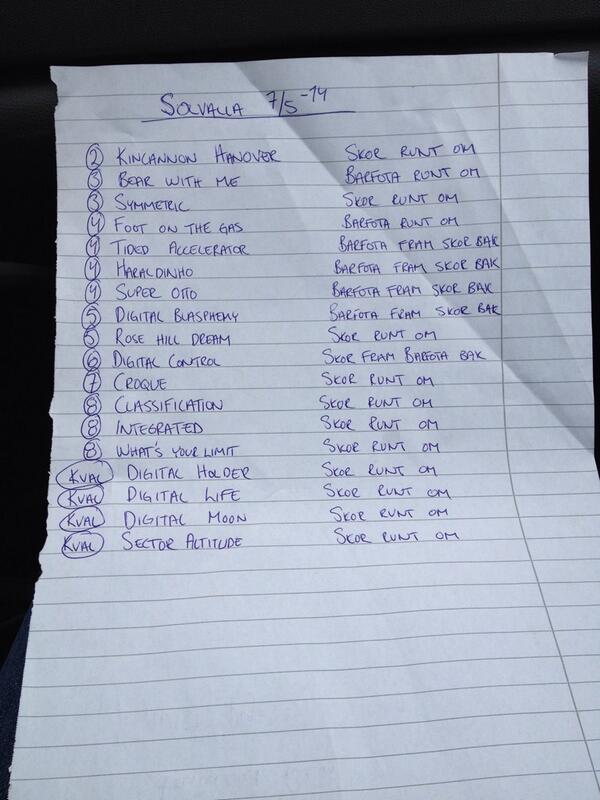 SOLVALLA 7/5-14
2 KINCANNON HANOVER SKOR RUNT OM
3 BEAR WITH ME BARFOTA RUNT OM
3 SYMMETRIC SKOR RUNT OM
4 FOOT ON THE GAS BARFOTA RUNT OM
4 TIDED ACCELERATOR BARFOTA FRAM SKOR BAK
4 HARALDINHO BARFOTA FRAM SKOR BAK
4 SUPER OTTO BARFOTA FRAM SKOR BAK
5 DIGITAL BLASPHEMY BARFOTA FRAM SKOR BAK
5 ROSE HILL DREAM SKOR RUNT OM
6 DIGITAL CONTROL SKOR FRAM BARFOTA BAK
7 CROQUE SKOR RUNT OM
8 CLASSIFICATION SKOR RUNT OM
8 INTEGRATED SKOR RUNT OM
8 WHAT'S YOUR LIMIT SKOR RUNT OM
KVAL DIGITAL HOLDER SKOR RUNT OM
KVAL DIGITAL LIFE SKOR RUNT OM
KVAL DIGITAL MOON SKOR RUNT OM
KVAL SECTOR ALTITUDE SKOR RUNT OM